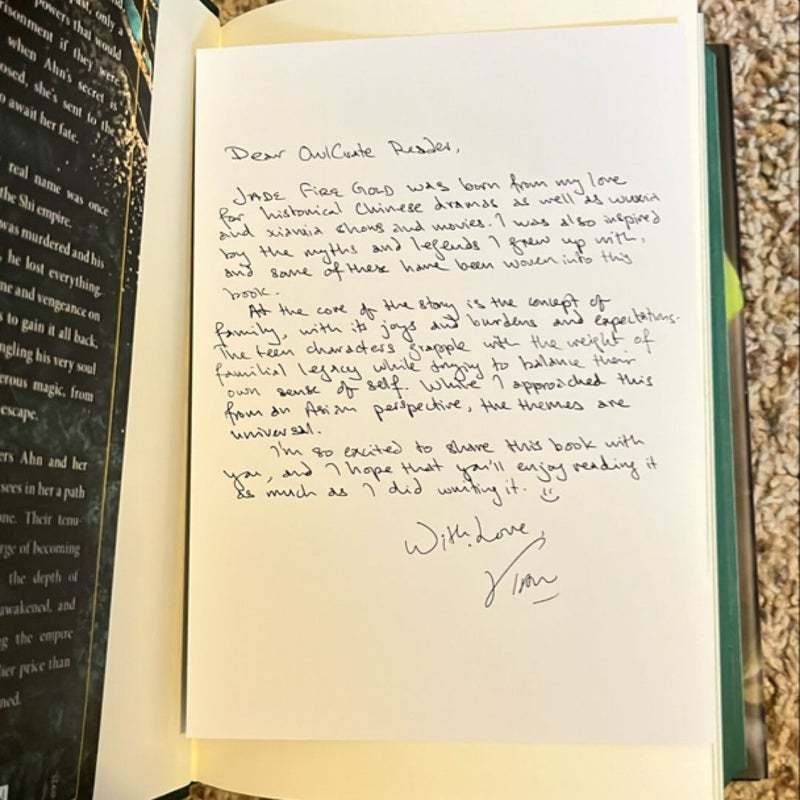 past, only a
powers that would
risonment if they were
when Ahn's secret is
osed, she's sent to the
o await her fate.
real name was once
the Shi empire.
was murdered and his
he lost everything.
ne and vengeance on
s to gain it all back,
ngling his very soul
erous magic, from
escape.
ers Ahn and her
sees in her a path
ne. Their tenu-
rge of becoming
the depth of
awakened, and
ng the empire
lier price than
ned.
Dear OwlCrate Reader,
JADE FIRE GOLD was born from my love
for historical Chinese dramas as well as wuxia
and xianxia shows and movies. I was also inspired
by the myths and legends I grew up with,
and some of these have been woven into this
book.
At the core of the story is the concept of
family, with its joys and burdens and expectations.
The teen characters grapple with the weight of
familial legacy while trying to balance their
own sense of self. While I approached this
from an Asian perspective, the themes are
universal.
I'm so excited to share this book with
you, and I hope that you'll enjoy reading it
as much as I did writing it. :)
With Love,